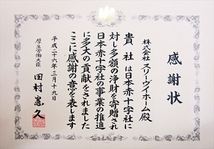 感謝状
株式会社
スリーヴイホーム殿
貴社は日本赤十字社に
対し多額の浄財を寄贈され
日本赤十字社の事業の推進
に多大の貢献をされました
ここに感謝の意を表します
平成二十六年三月十九日
厚生労働大臣
田村憲久